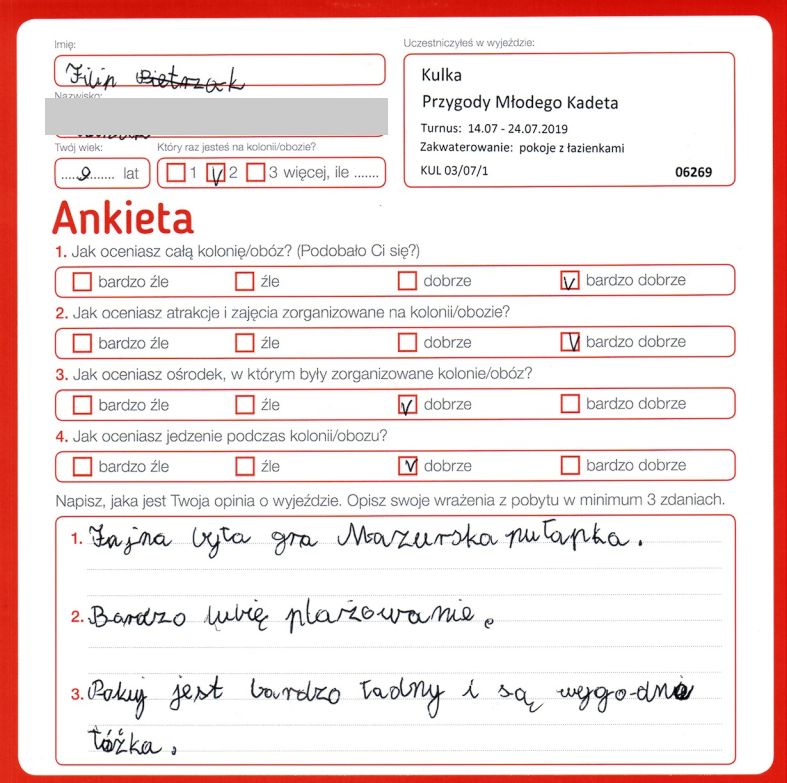 Imię:
Filip Pietrzak
Nazwisko:
Twój wiek:
9 lat
Który raz jesteś na kolonii/obozie?
1 V 2 3 więcej, ile .......
Uczestniczyłeś w wyjeździe:
Kulka
Przygody Młodego Kadeta
Turnus: 14.07 - 24.07.2019
Zakwaterowanie: pokoje z łazienkami
KUL 03/07/1 06269
Ankieta
1. Jak oceniasz całą kolonię/obóz? (Podobało Ci się?)
bardzo źle źle dobrze V bardzo dobrze
2. Jak oceniasz atrakcje i zajęcia zorganizowane na kolonii/obozie?
bardzo źle źle dobrze V bardzo dobrze
3. Jak oceniasz ośrodek, w którym były zorganizowane kolonie/obóz?
bardzo źle źle V dobrze bardzo dobrze
4. Jak oceniasz jedzenie podczas kolonii/obozu?
bardzo źle źle V dobrze bardzo dobrze
Napisz, jaka jest Twoja opinia o wyjeździe. Opisz swoje wrażenia z pobytu w minimum 3 zdaniach.
1. Fajna była gra Mazurska pułapka.
2. Bardzo lubię plażowanie.
3. Pokuj jest bardzo ładny i są wygodne
łóżka.